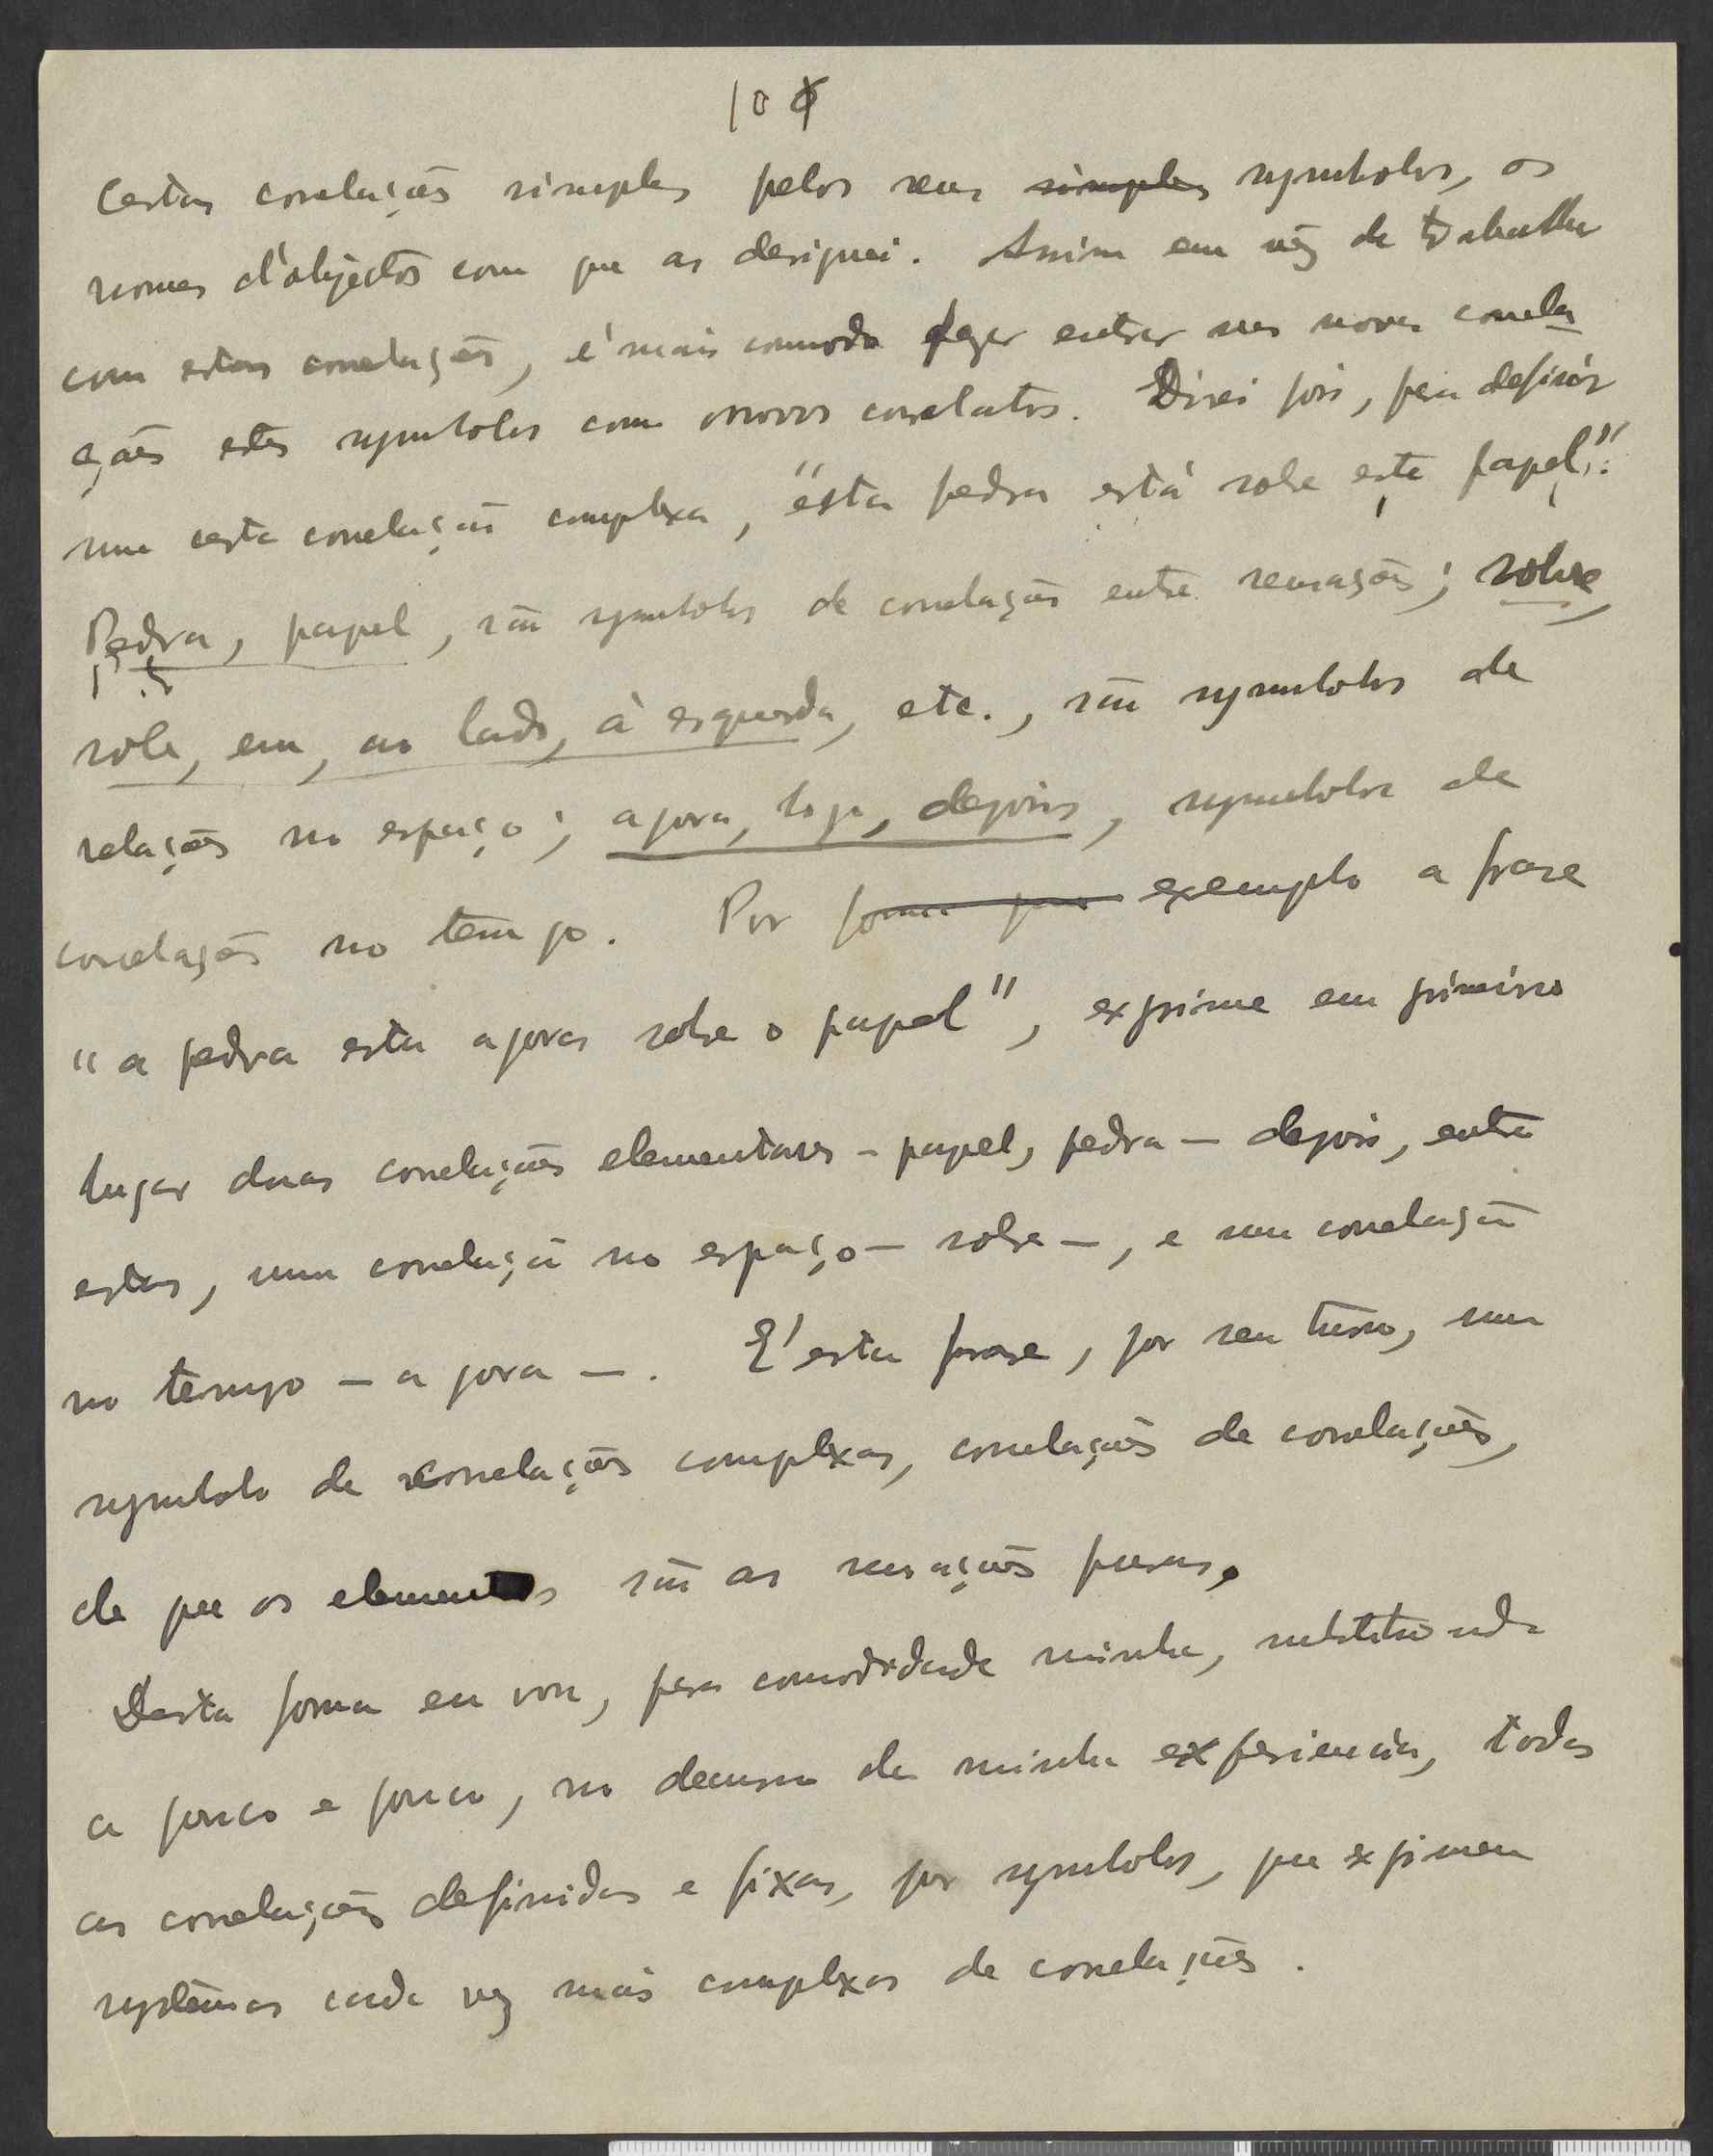 10
Certas correlações simples pelos seus simples symbolos, os
nomes d'objectos com que as designei. Assim em vêz de trabalhar
com estas correlações, é mais commodo fazer entrar nas novas correla
ções estes symbolos como novos correlatos. Direi pois, para definir
uma certa correlação complexa, "esta pedra está sobre este papel".
Pedra, papel, são symbolos de correlações entre sensações; sobre,
sobe, em, ao lado, à esquerda, etc., são symbolos de
relações no espaço; agora, logo, depois, symbolos de
correlações no tempo. Por forma que exemplo a frase
"a pedra esta agora sobre o papel", exprime em primeiro
lugar duas correlações elementares - papel, pedra - depois, entre
estas, uma correlação no espaço - sobre -, e uma correlação
no tempo - agora -. E' esta frase, por seu turno, um
symbolo de correlações complexas, correlações de correlações,
de que os elementos são as sensações puras.
Desta forma eu vou, para comodidade minha, substituindo
a pouco e pouco, no decurso da minha experiencia, todas
as correlações definidas e fixas, por symbolos, que exprimem
systêmas cada vez mais complexos de correlações.